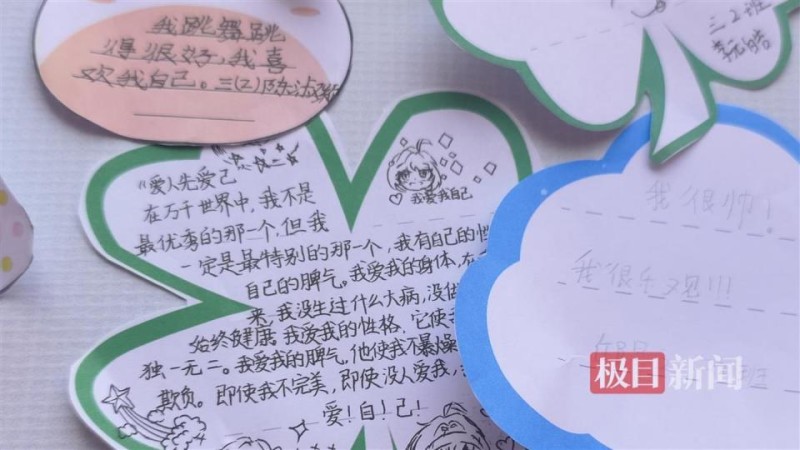 我跳舞跳
得很好，我喜
欢我自己。三(2)陈
三2班
我爱我自己
"爱人先爱己
在万千世界中，我不是
最优秀的那一个，但我
一定是最特别的那一个，我有自己的性
自己的脾气。我爱我的身体，在
来，我没生过什么大病，没
始终健康。我爱我的性格，它使我
独一无二。我爱我的脾气，他使我不
欺负。即使我不完美，即使没人爱我，
爱！自！己！
我很帅！
我很乐观!!!
班
极目新闻